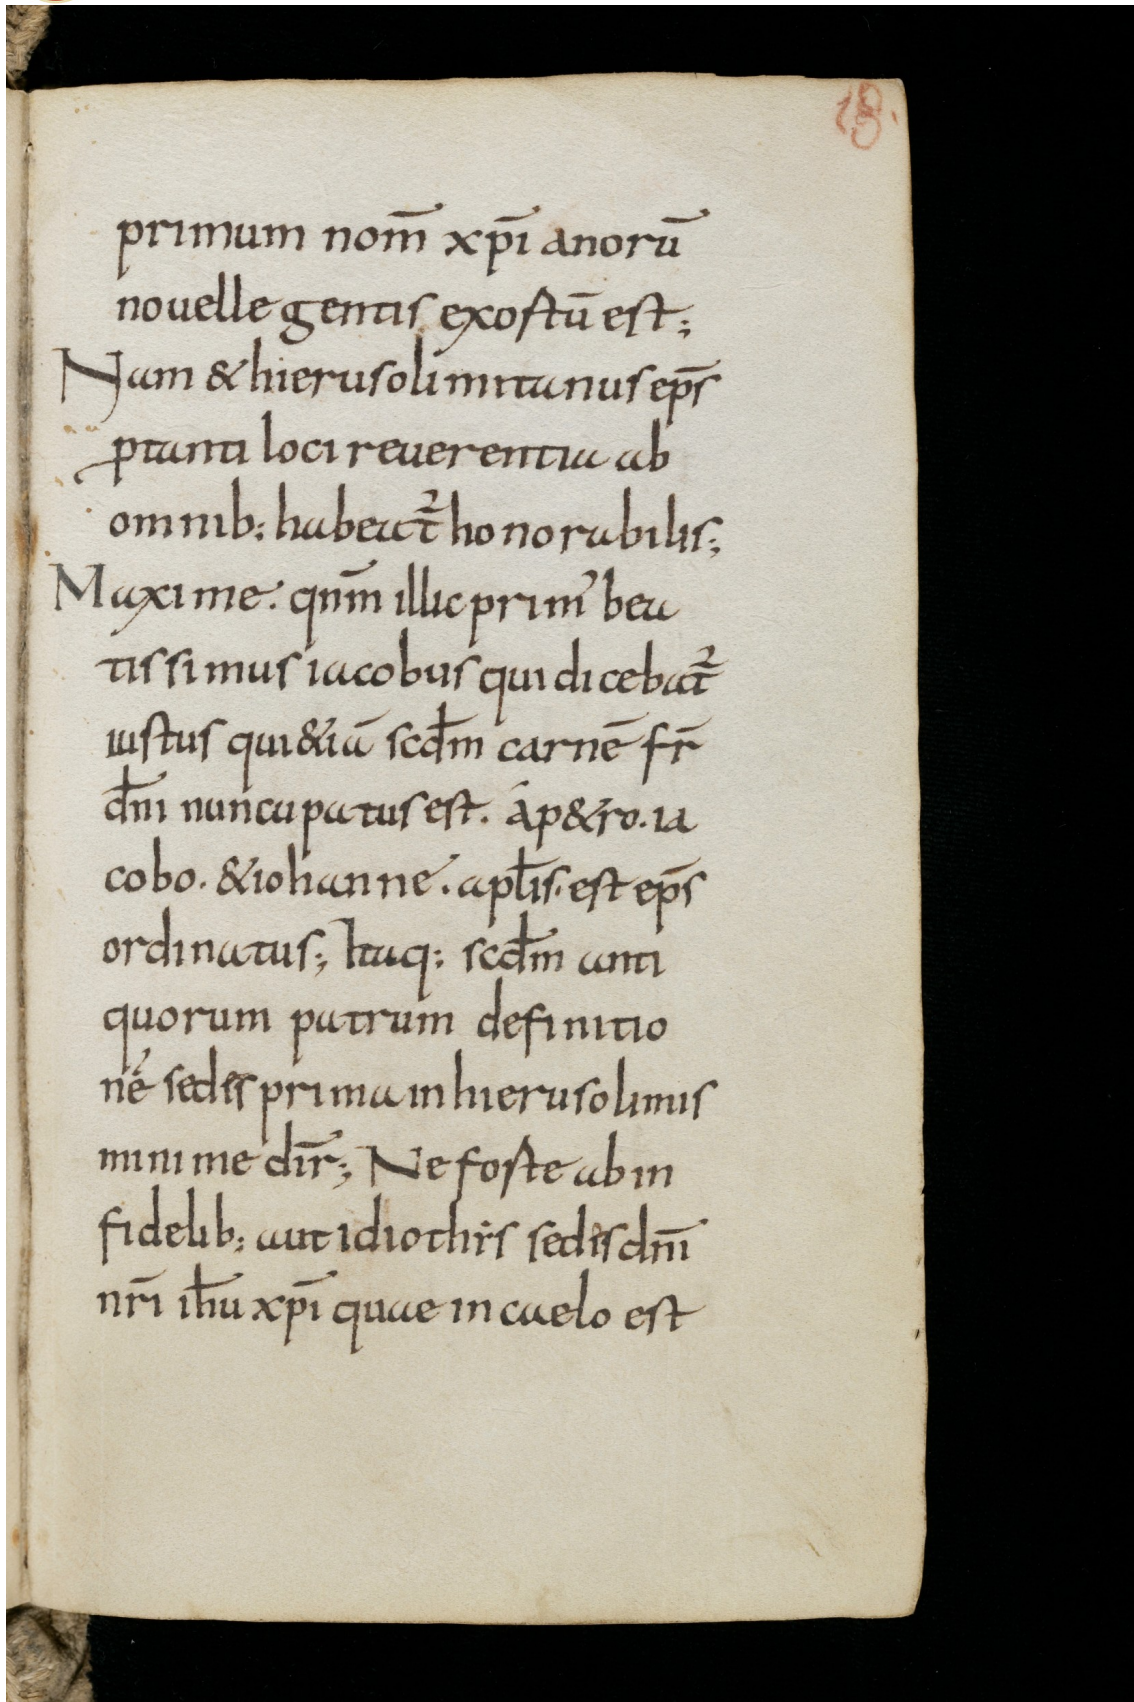 18.
primum nom̅ xp̅i anorū
nouelle gentis exoftū est;
Nam & hierusolimitanus ep̅s
ꝓtanti loci reuerentia ab
omnib; habeat̅² honorabilis;
Maxime. qnm̅ illic prim' bea
tissimus iacobus qui dicebat̅²
iustus qui &iā scd̅m carnē fr̅
dn̅i nuncupatus est. áp&ro. ia
cobo. & iohanne. apl̅is. est ep̅s
ordinatus; Itaq; scd̅m anti
quorum patrum definitio
nē sedis prima in hierusolimis
minime dir̅; Ne foste ab in
fidelib; aut idiothis sedis dn̅i
nr̅i ih̅u xp̅i quae in caelo est